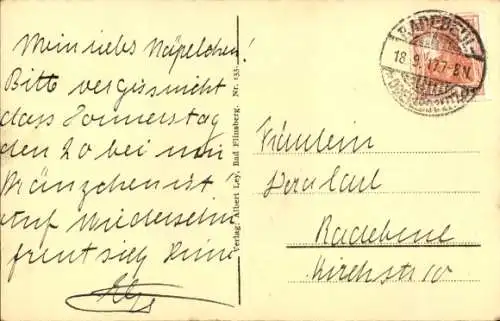 Mein liebs Näpelchen!
Bitte vergiss nicht
dass Donnerstag
den 20 bei mir
Kränzchen ist
Auf Wiedersehn
freut sich Deine
Verlag: Albert Ley, Bad Flinsberg. Nr. 135.
RADEBEUL
18.9.17. 7-8 N.
Fräulein
Radebeul
Kirchstr 10